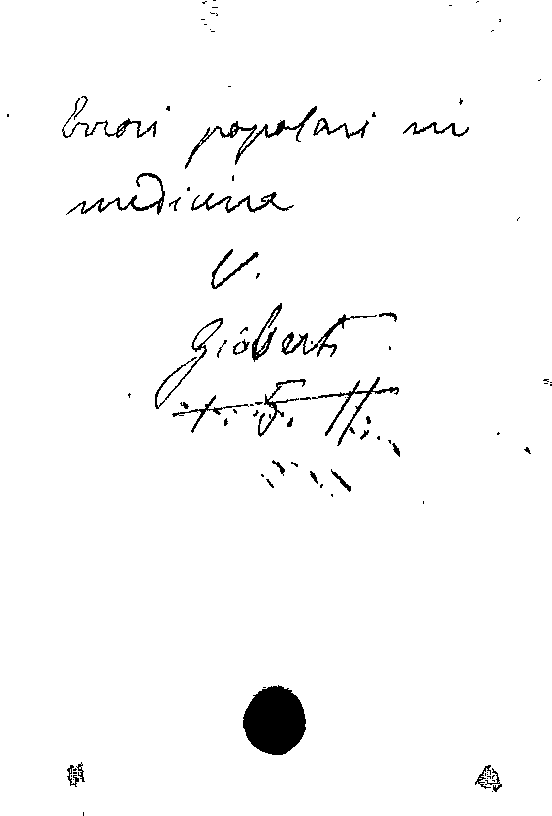 Errori popolari in
medicina
V.
Gioberti